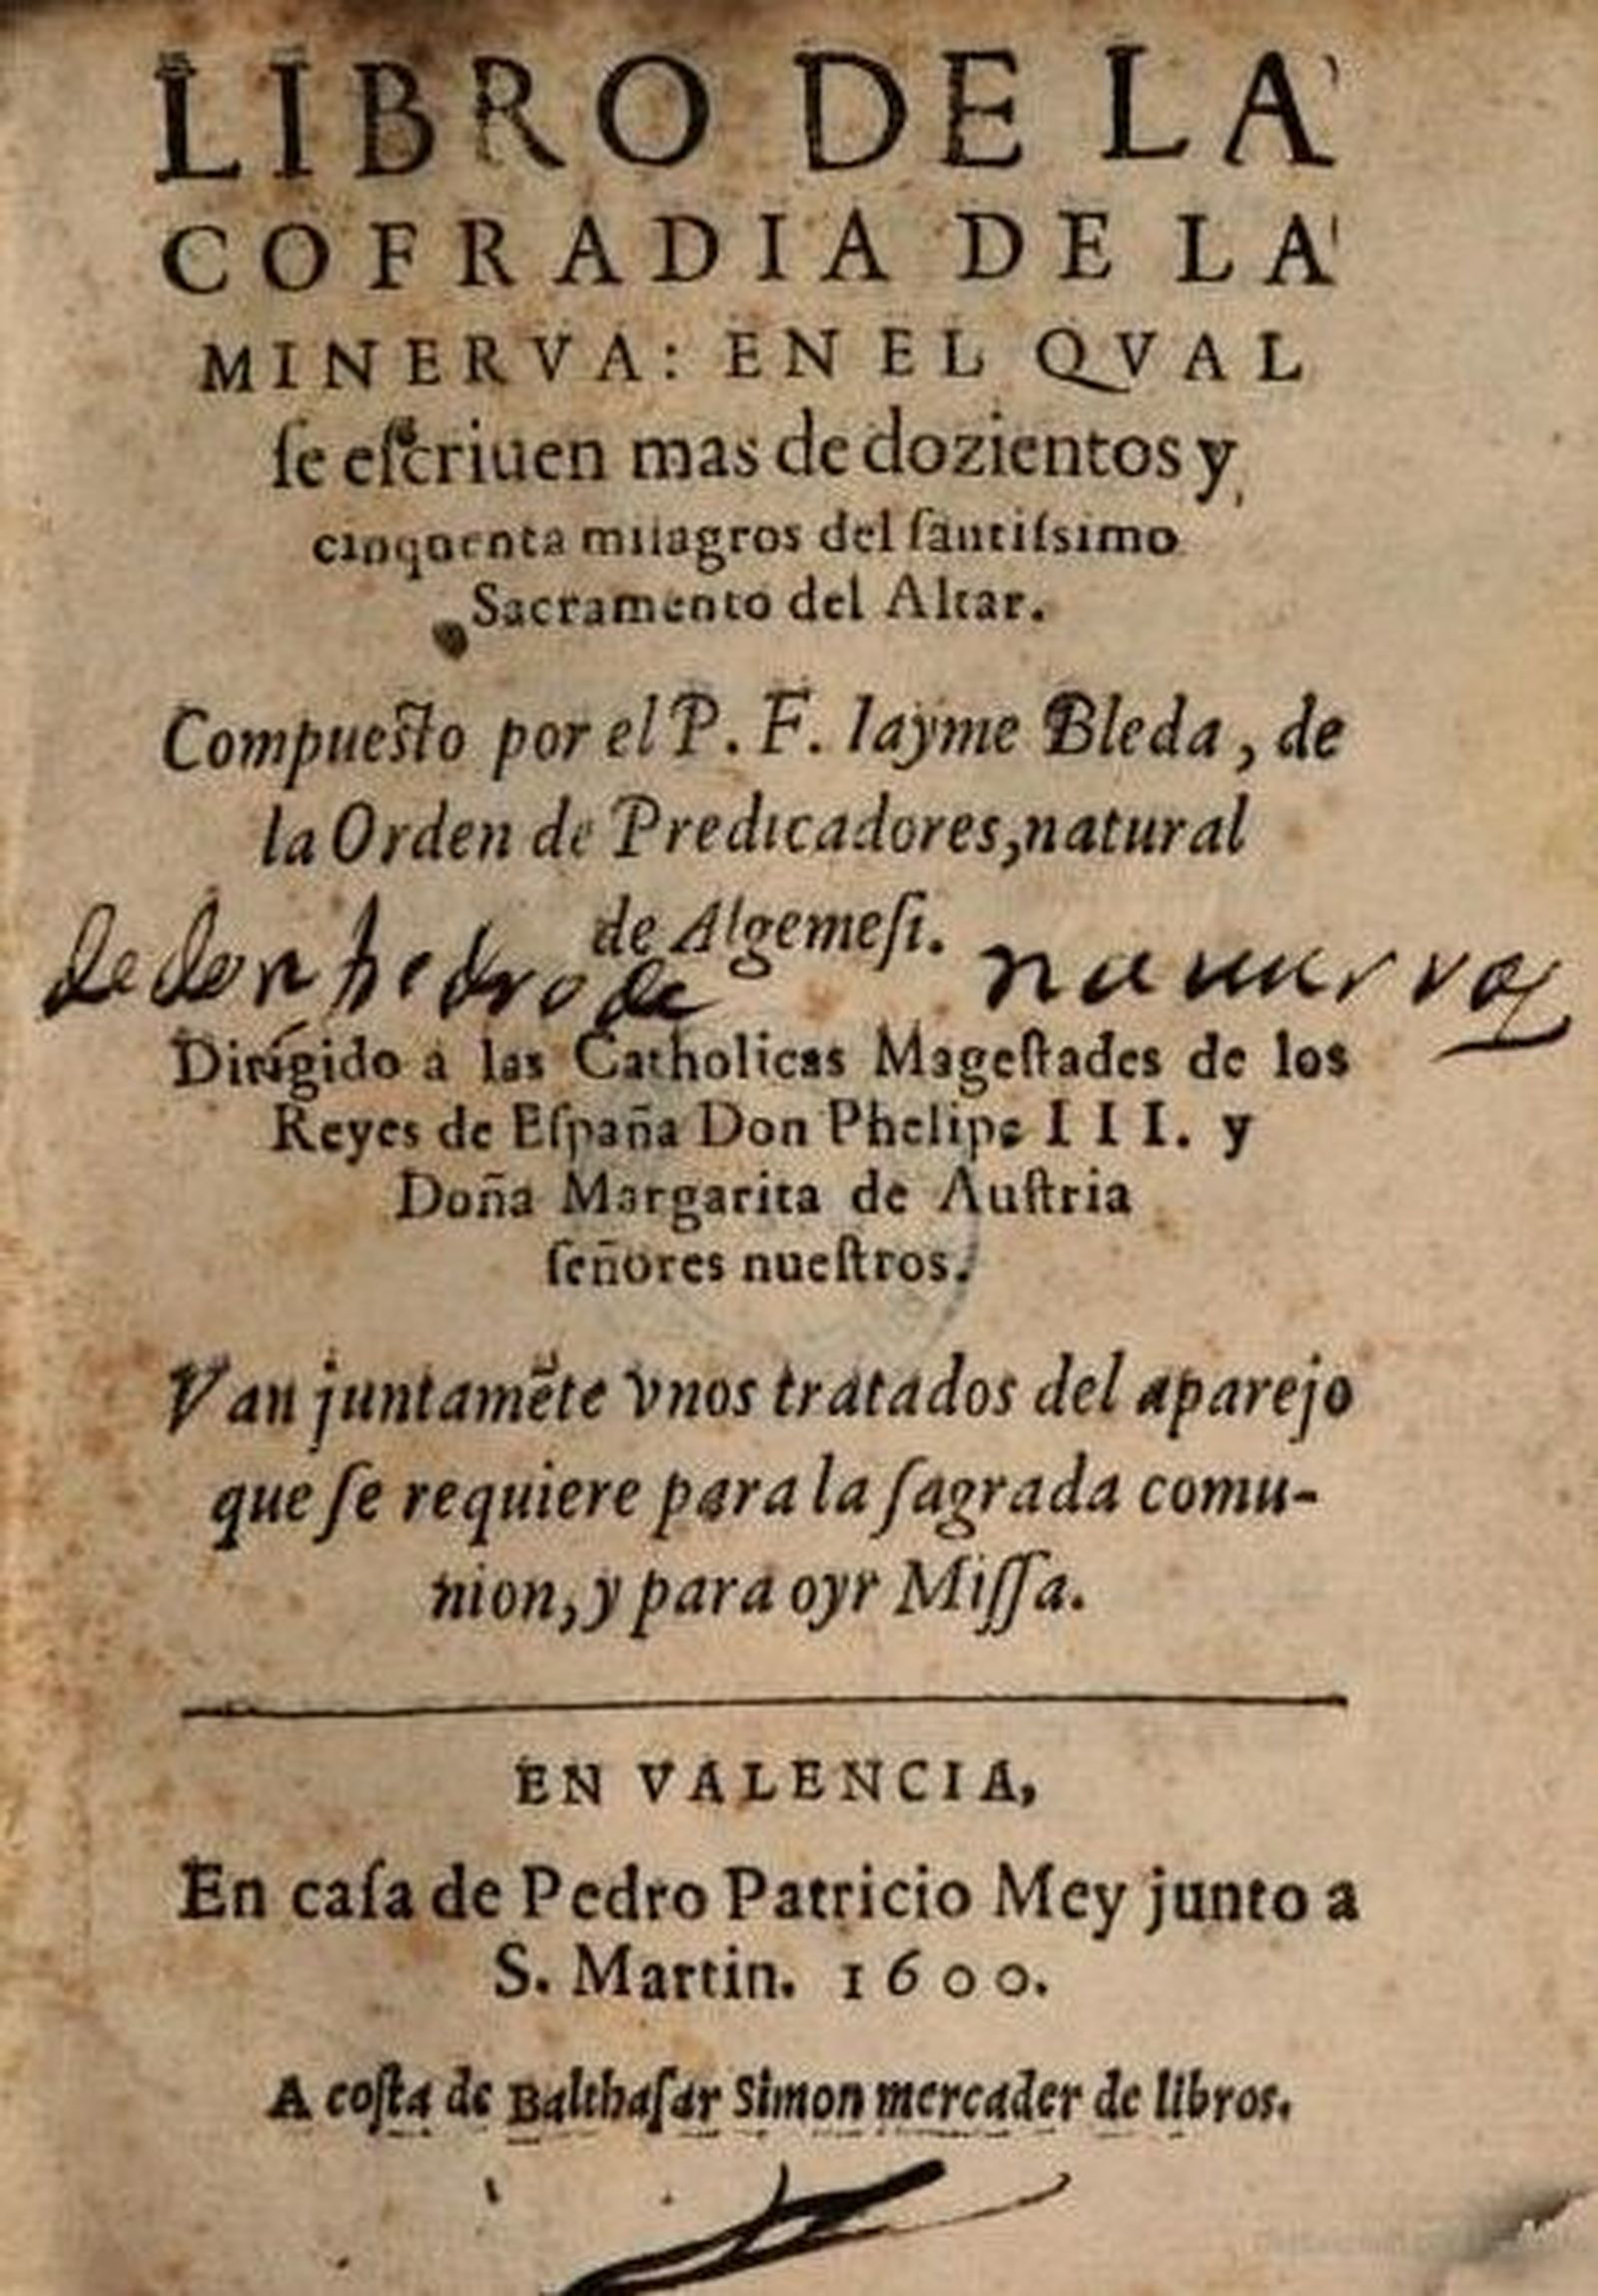 LIBRO DE LA
COFRADIA DE LA
MINERVA: EN EL QVAL
ſe eſcriuen mas de dozientos y
cinquenta milagros del ſantiſsimo
Sacramento del Altar.
Compueſto por el P. F. Iayme Bleda, de
la Orden de Predicadores, natural
de Algemeſi.
de don pedro de navarra
Dirigido a las Catholicas Mageſtades de los
Reyes de Eſpaña Don Phelipe III. y
Doña Margarita de Auſtria
ſeñores nueſtros.
Van juntamẽte vnos tratados del aparejo
que ſe requiere para la ſagrada comu-
nion, y para oyr Miſſa.
EN VALENCIA,
En caſa de Pedro Patricio Mey junto a
S. Martin. 1600.
A coſta de Balthaſar Simon mercader de libros.